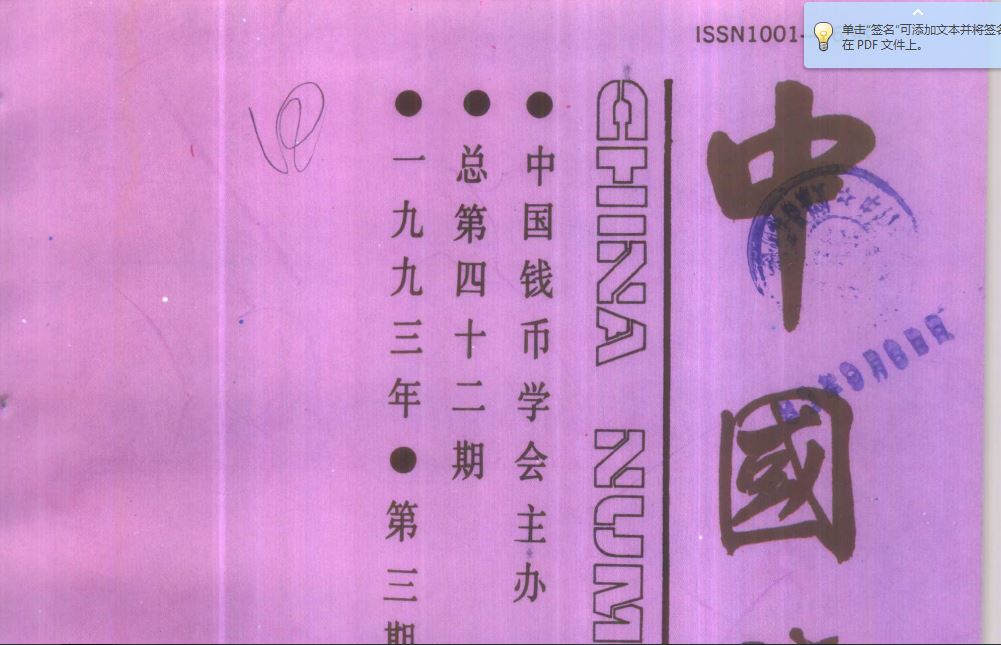 ISSN1001-
单击“签名”可添加文本并将签名
在 PDF 文件上。
中國
CHINA NUM
●中国钱币学会主办
●总第四十二期
●一九九三年●第三期